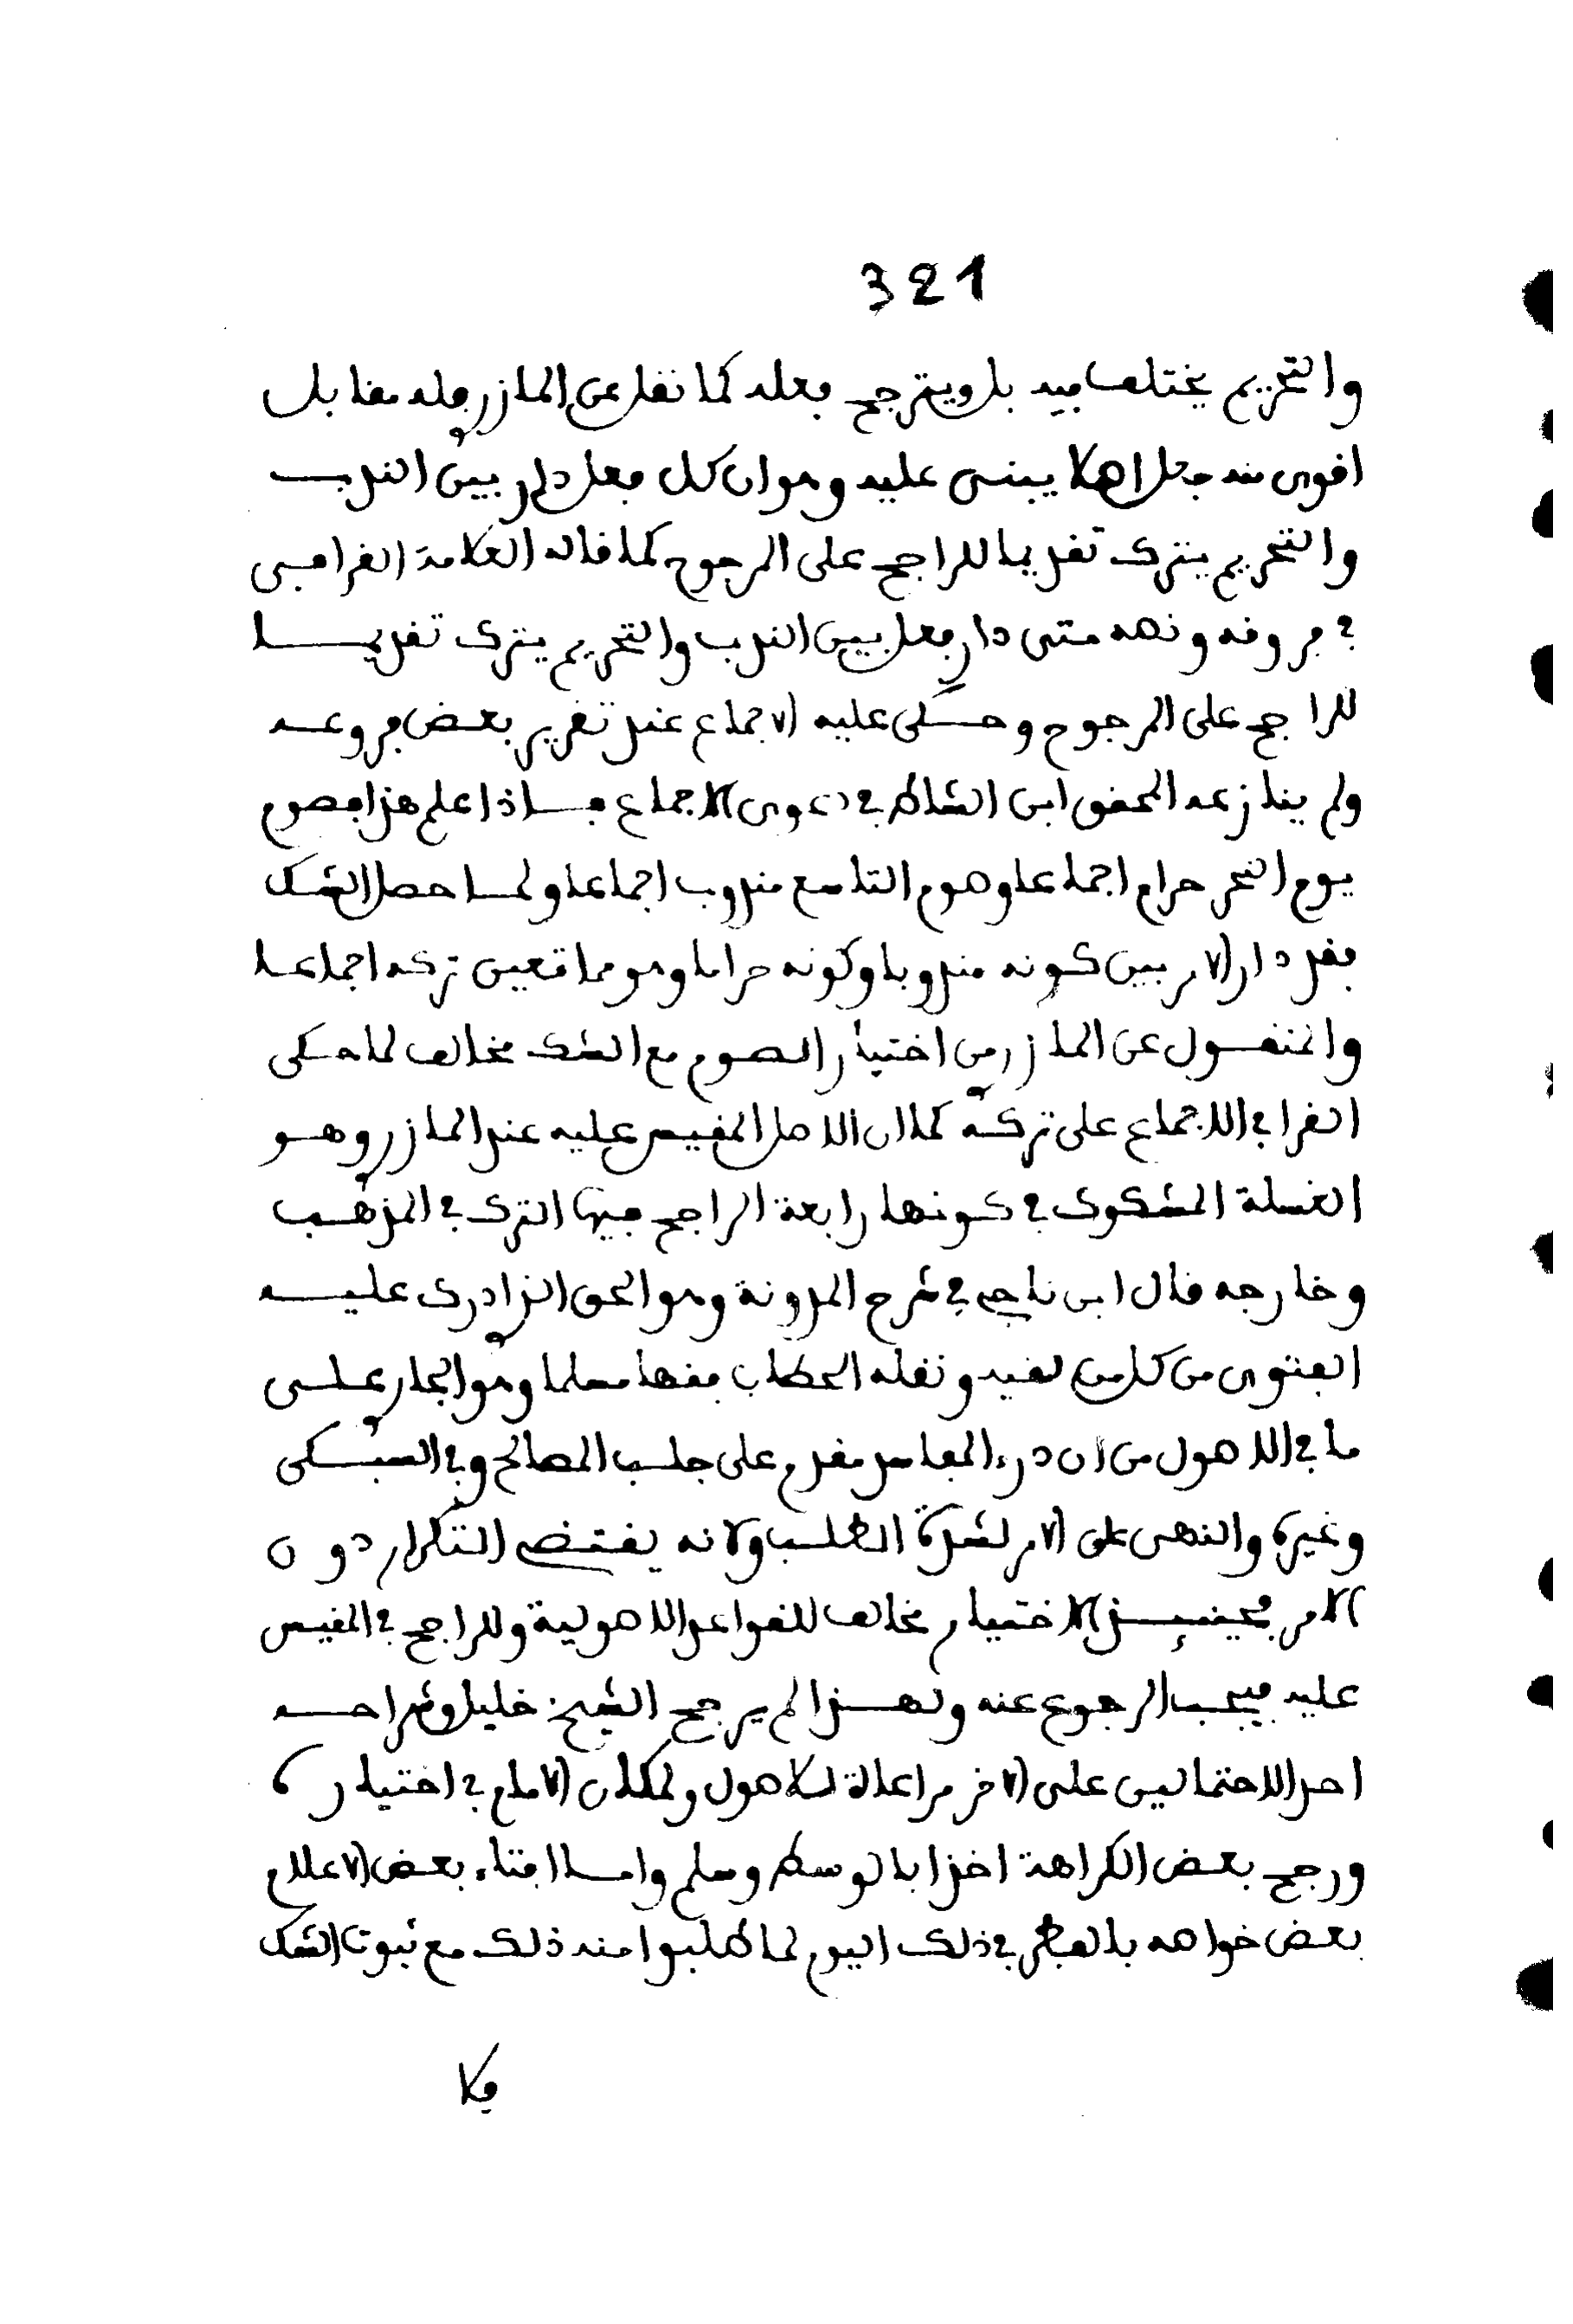 321
والتحريم يختلف فيه بل ويترجح فعله كما نقل عن المازري فله مقابل
اقوى منه جعل اصلا يبنى عليه وهو ان كل فعل دار بين الندب
والتحريم يترك تقديما للراجح على المرجوح كما قاله العلامة القرافي
في فروقه ونصه متى دار فعل بين الندب والتحريم يترك تقديما
للراجح على المرجوح وحكى عليه الاجماع عند تقرير بعض فروعه
ولم ينازعه المحقق ابن الشاط في دعوى الاجماع فاذا علم هذا فصوم
يوم النحر حرام اجماعا وصوم التاسع مندوب اجماعا ولما حصل الشك
فقد دار الامر بين كونه مندوبا وكونه حراما وهو مما تعين تركه اجماعا
والمنقول عن المازري من اختيار الصوم مع الشك مخالف لما حكى
القرافي الاجماع على تركه كما ان الاصل المقيس عليه عند المازري وهو
الغسلة المشكوك في كونها رابعة الراجح فيها الترك في المذهب
وخارجه قال ابن ناجي في شرح المدونة وهو الحق الذي ادرك عليه
الفتوى من كل من لقيه ونقله الحطاب فقها مسلما وهو الجاري على
ما في الاصول من ان درء المفاسد مقدم على جلب المصالح وفي السبكي
وغيره والنهي على الامر لشدة الطلب ولانه يقتضي التكرار دون
الامر فحينئذ الاختيار مخالف للقواعد الاصولية وللراجح في المقيس
عليه فيجب الرجوع عنه ولهذا لم يرجح الشيخ خليل وشراحه
احد الاحتمالين على الاخر مراعاة للاصول ولمكان الامام في اختياره
ورجح بعض الكراهة اخذا بالوسط وسلم واما افتاء بعض الاعلام
بعض خواصه بالفطر في ذلك اليوم لما طلبوا منه ذلك مع ثبوت الشك
فلا